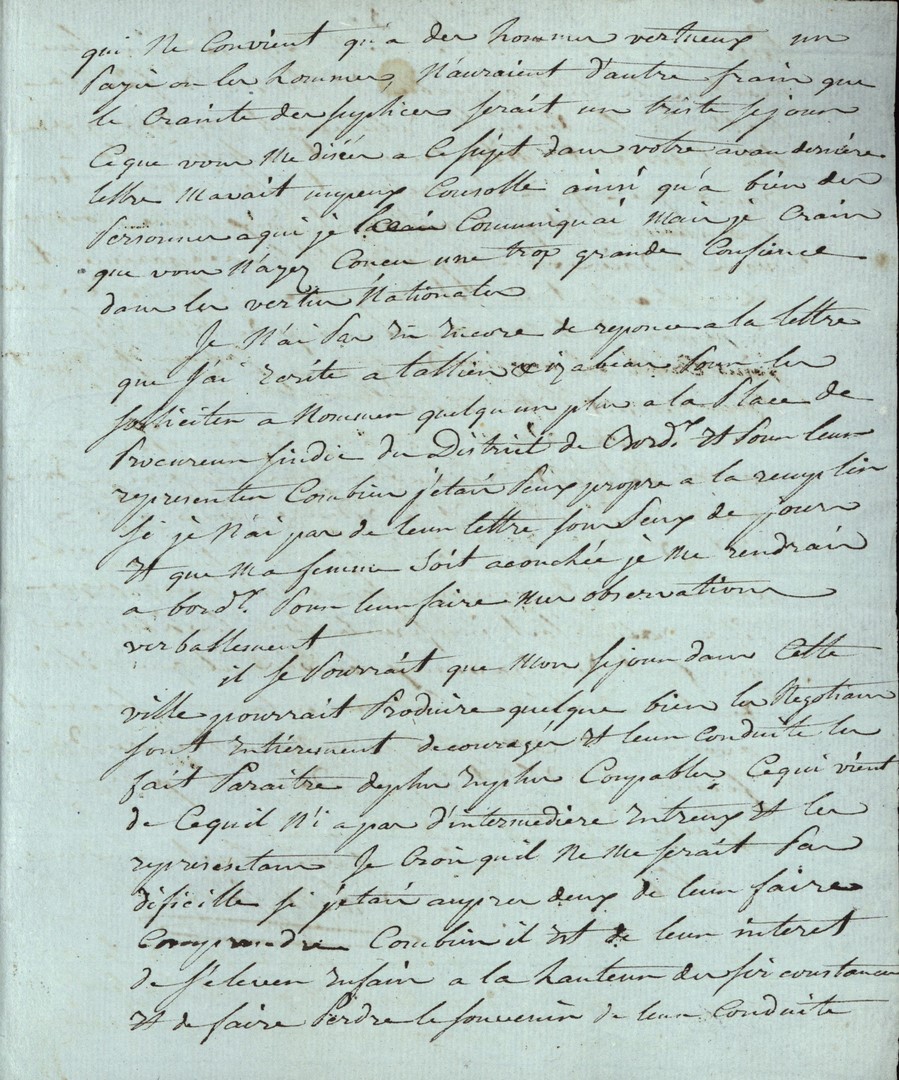 qui ne Convient qu'a des hommes vertueux un
Payis ou les hommes, N'auraient d'autre frain que
la Crainte des suplices serait un triste sejour
Ceque vous me disiéz a Cesujet dans votre avan derniere
lettre M'avait unpeux Consollé ainsi qu'a bien des
Personnes à qui je la Communiquai Mais je Crain
que vous N'ayez Concu une trop grande Confience
dans les vertus Nationales
Je N'ai Pas Eu Encore de reponce a la lettre
que j'ai Ecrite a tallien & izabeau Pour les
solliciter a Nommer quelqu'un plus a la Place de
Procureur sindic du District de Bord.x Et Pour leur
representer Combien j'etais Peux propre a la remplir
Si je N'ai pas de leur lettre sous Peux de jours
Et que Ma femme Soit acouchée je Me rendrais
a bord.x Pour leur faire Mes observations
verballement
il se Pourrait que Mon sejour dans Cette
ville pourrait Produire quelque bien les Negotians
sont Entiérement decouragés Et leur Conduite les
fait Paraitre deplus Enplus Coupables, Cequi vient
de Cequil N'i a pas d'intermediére Entreux Et les
representans Je Crois quil Ne Me serait Pas
dificille si j'etais aupres deux de leur faire
Comprendre Combien il Est de leur interet
de s'elever Enfain a la hauteur des sirconstances
Et de faire Perdre le souvenir de leur Conduite